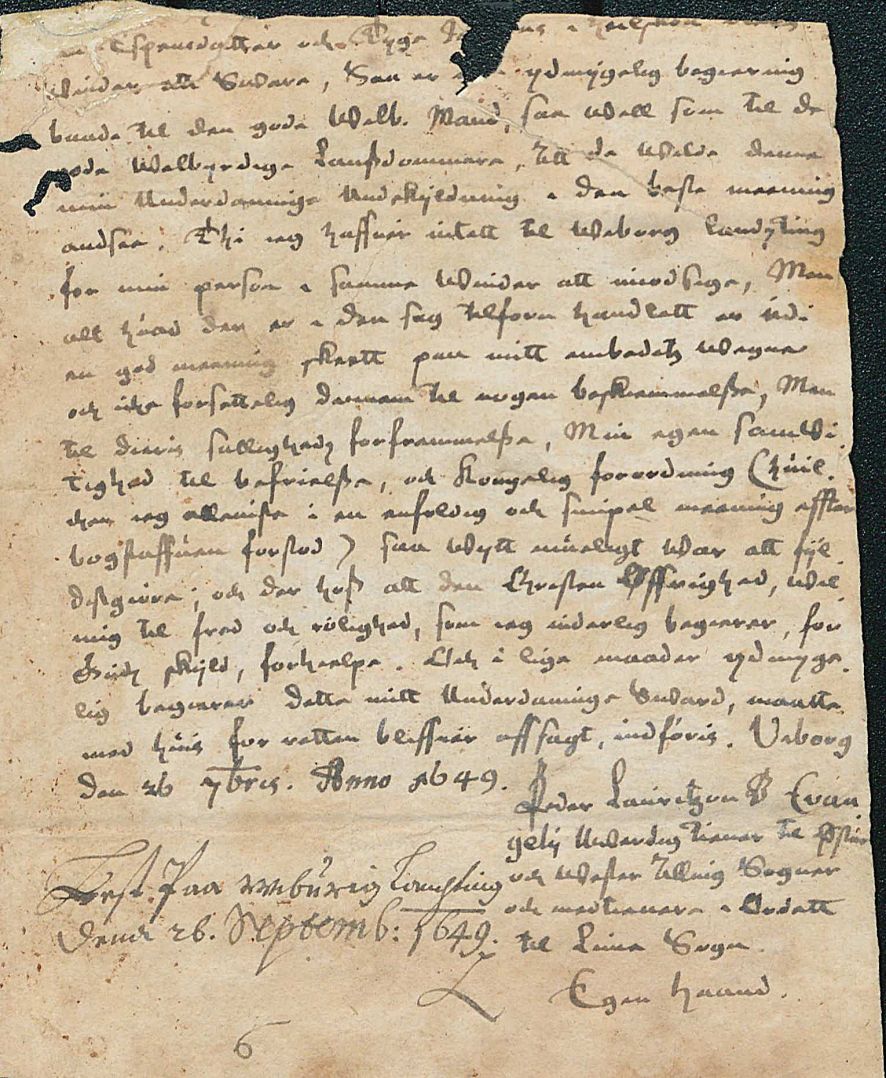 Espensdatter och Tyge
Winder att Sware, Saa er ydmygelig begiering
baade til den gode Welb. Mand, saa well som til de
gode Welbyrdige Landsdommere, att de wilde denne
min Underdannige Undskyldning i den beste meening
andsee. Thi ieg haffuer intett til Weborg landzting
for min person i samme Winder att imodsige, Men
alt huad der er i den sag tilforn handlett er udi
en god meening skeett paa mitt embedetz wegne
och icke forsettelig dennem til nogen beskiemmelsse, Men
til dieris salligheds forfremmelsse, Min egen samwi
tighed til befrielsse, och Kongelig forordning (huil
chen ieg alleniste i en enfoldig och simpel meening effter
bogstaffuen forstod) saa wytt mueligt war att fyl
distgiøre; och der hoss att den Christen Øffrighed, wil
mig til fred och rolighed, som ieg inderlig begierer, for
Guds skyld, forhielpe. Och i lige maader ydmyge
lig begierer dette mitt Underdanige Suard, maatte
med huis for retten bliffuer affsagt, indføris. Viborg
den 26 7bris. Anno 1649.
Peder Lauritzøn Evan
gelij Uwerdig tiener til Øster
och Wester Ulling Sogner
och medtienere i Ordett
til Lime Sogn
Egen haand.
Lest Paa Wiburig Landzting
Dend 26. Septemb: 1649.
6